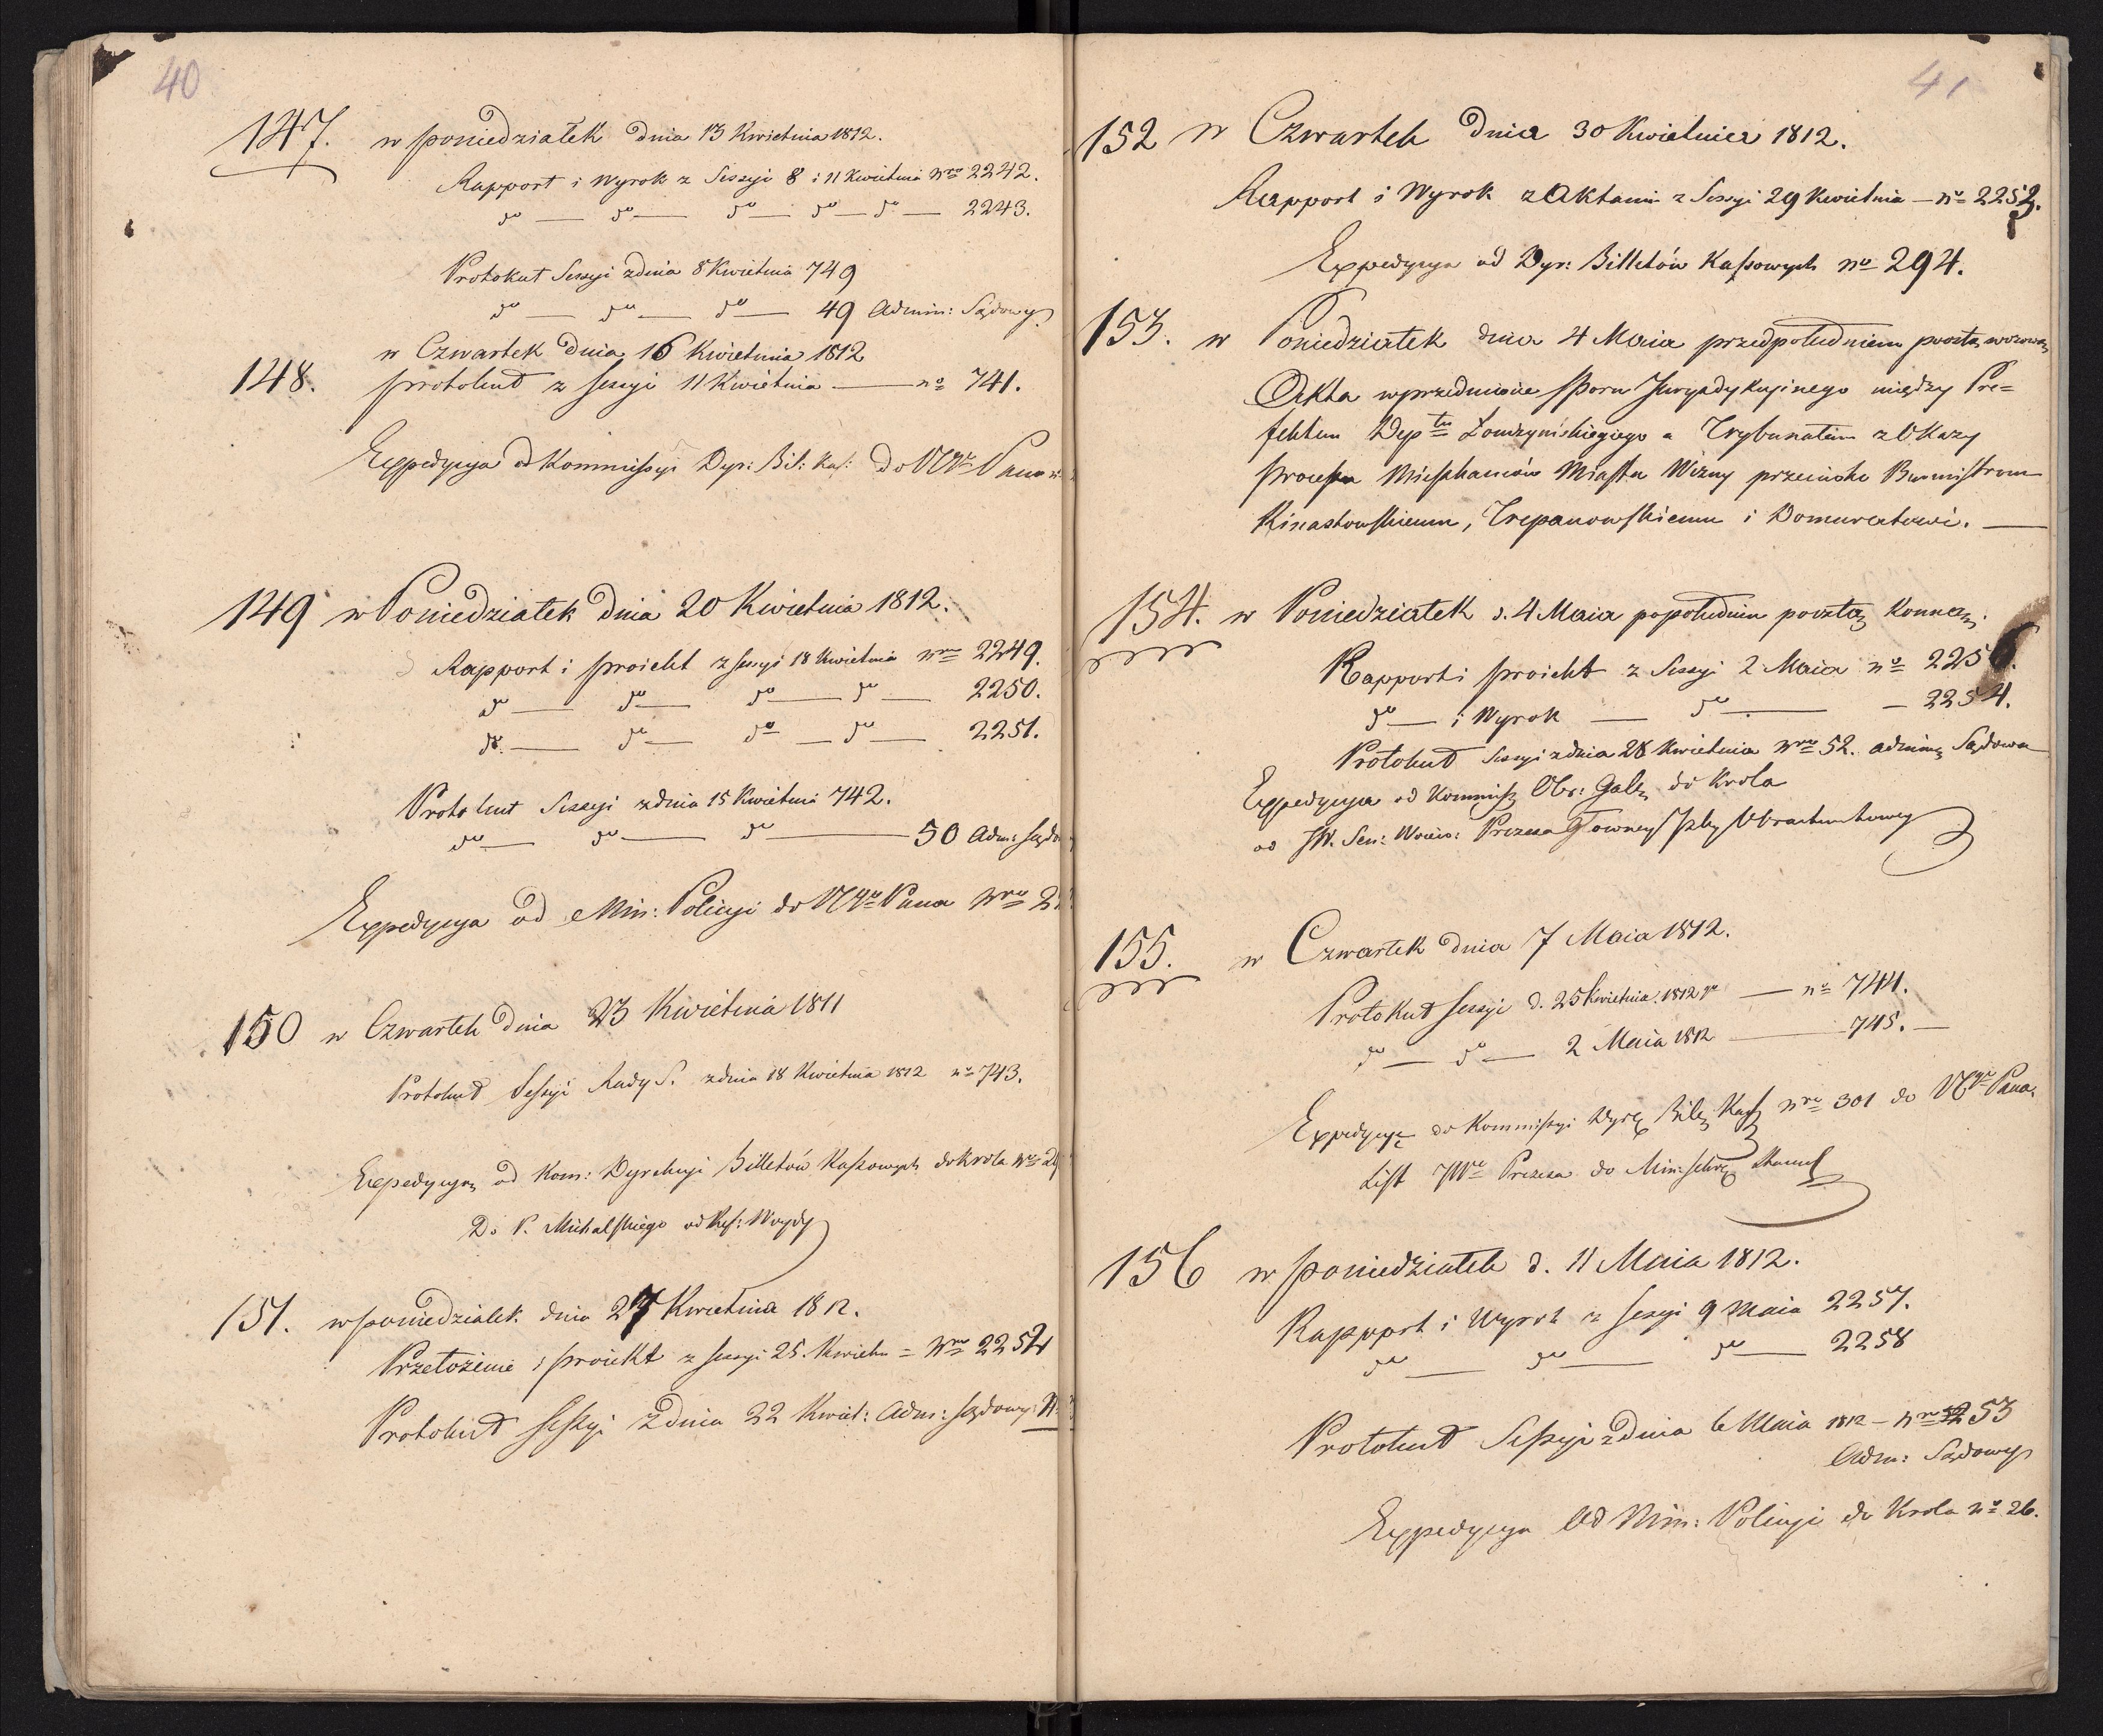 40
147. w poniedziałek dnia 13 Kwietnia 1812.
Rapport i Wyrok z Sessyi 8 i 11 Kwietnia Nro 2242.
do — do — do — do — do — 2243.
Protokuł Sessyi z dnia 8 Kwietnia 749
do — do — do — 49 Admin: Sądowy
w Czwartek dnia 16 Kwietnia 1812
148. protokuł z sessyi 11 Kwietnia — no 741.
Expedycya od Kommissyi Dyr: Bil: Kas: do Pana
149 w Poniedziałek dnia 20 Kwietnia 1812.
Rapport i proiekt z sessyi 18 Kwietnia nro 2249.
do — do — do — do — 2250.
do — do — do — do — 2251.
Protokuł Sessyi z dnia 15 Kwietnia 742.
do — do — do — 50 Adm: sądo
Expedycya od Min: Policyi do Pana Nro
150 w Czwartek dnia 23 Kwietnia 1811
Protokuł Sessyi Rady S. z dnia 18 Kwietnia 1812 no 743.
Expedycya od Kom: Dyrekcyi Billetów Kassowych do Krola Nro
Do P. Michalskiego od Ref: Woydy
151. w poniedziałek dnia 27 Kwietnia 1812.
Przełożenie i proiekt z sessyi 25. Kwietn = Nro 2252
Protokuł Sessyi z dnia 22 Kwiet: Adm: sądowy: N
41
152 w Czwartek dnia 30 Kwietnia 1812.
Rapport i Wyrok z Aktami z Sessyi 29 Kwietnia — no 2253.
Expedycya od Dyr: Billetów Kassowych no 294.
153. w Poniedziałek dnia 4 Maia przedpołudniem pocztą wozową
Akta w przedmiocie sporu Juryzdykcyinego między Pre=
fektem Deptu Łomżyńskiegiego a Trybunałem z Okazyi
processu Mieszkańców Miasta Wizny przeciwko Burmistrzom
Kinastowskiemu, Trepanowskiemu i Domuratowi. —
154. w Poniedziałek d. 4 Maia popołudniu pocztą Konną.
Rapport i proiekt z Sessyi 2 Maia no 2256.
do — i Wyrok — do — — 2254.
Protokuł Sessyi z dnia 28 Kwietnia Nro 52. admin Sądowa
Expedycya od Kommiss Obr: Gali do Krola
od JW. Sen: Woiew: Prezesa Głowney Izby Obrachunkowey
155. w Czwartek dnia 7 Maia 1812.
Protokuł sessyi d. 25 Kwietnia 1812 r — no 744.
do — do — 2 Maia 1812 — 745. —
Expedycyę do Kommissyi Dyrek Bile Kass Nro 301 do Pana.
List JWo Prezesa do Min: sekre Stanu
156 w poniedziałek d. 11 Maia 1812.
Rapport i Wyrok z sessyi 9 maia 2257.
do — do — do — 2258
Protokuł Sessyi z dnia 6 Maia 1812 — Nro 53
Adm: Sądowy
Expedycya Od Min: Policyi do Krola no 26.